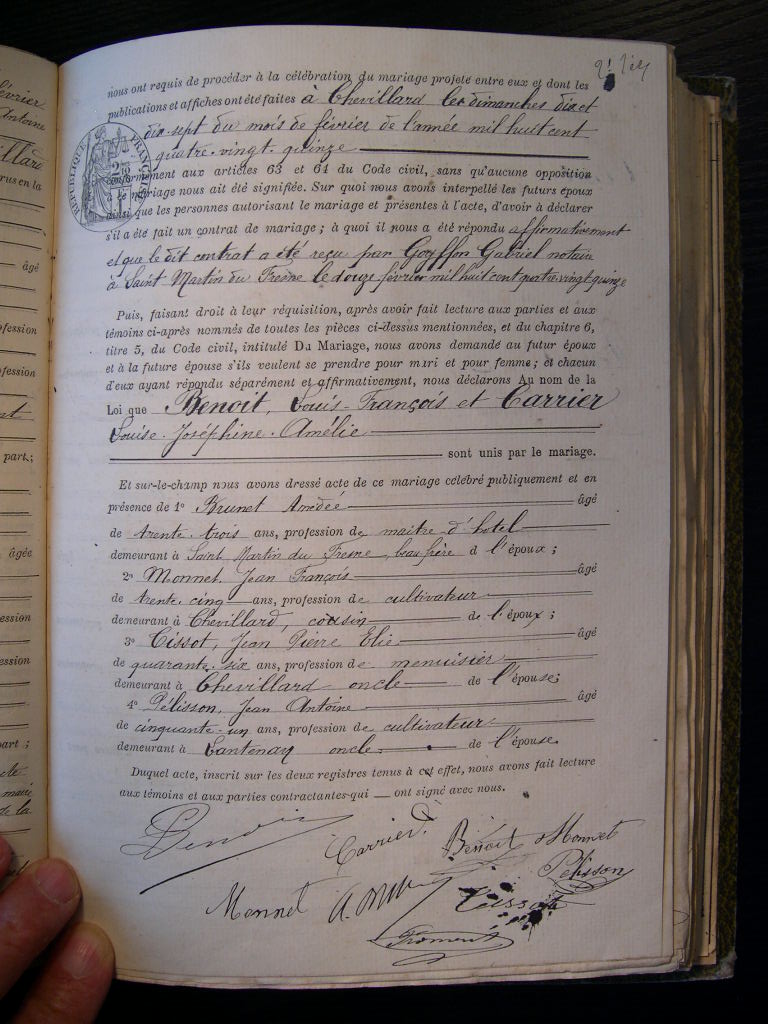 nous ont requis de procéder à la célébration du mariage projeté entre eux et dont les
publications et affiches ont été faites à Chevillard les dimanches dix et
dix-sept du mois de février de l'année mil huit cent
quatre-vingt-quinze
conformément aux articles 63 et 64 du Code civil, sans qu'aucune opposition
ce mariage nous ait été signifiée. Sur quoi nous avons interpellé les futurs époux
ainsi que les personnes autorisant le mariage et présentes à l'acte, d'avoir à déclarer
s'il a été fait un contrat de mariage; à quoi il nous a été répondu affirmativement
et que le dit contrat a été reçu par Goyffon Gabriel notaire
à Saint Martin du Fresne le douze février mil huit cent quatre vingt quinze
Puis, faisant droit à leur réquisition, après avoir fait lecture aux parties et aux
témoins ci-après nommés de toutes les pièces ci-dessus mentionnées, et du chapitre 6,
titre 5, du Code civil, intitulé Du Mariage, nous avons demandé au futur époux
et à la future épouse s'ils veulent se prendre pour mari et pour femme; et chacun
d'eux ayant répondu séparément et affirmativement, nous déclarons Au nom de la
Loi que Benoit, Louis-François et Carrier
Louise-Joséphine-Amélie
sont unis par le mariage.
Et sur-le-champ nous avons dressé acte de ce mariage célébré publiquement et en
présence de 1° Brunet Amédée âgé
de trente-trois ans, profession de maitre-d'hotel
demeurant à Saint Martin du Fresne, beau frère d l'époux;
2° Monnet, Jean François âgé
de trente-cinq ans, profession de cultivateur
demeurant à Chevillard, cousin de l'époux;
3° Tissot, Jean Pierre Elie âgé
de quarante-six ans, profession de menuisier
demeurant à Chevillard oncle de l'épouse;
4° Pélisson, Jean Antoine âgé
de cinquante-un ans, profession de cultivateur
demeurant à Lantenay oncle de l'épouse
Duquel acte, inscrit sur les deux registres tenus à cet effet, nous avons fait lecture
aux témoins et aux parties contractantes qui ont signé avec nous.
Benoit Carrier Benoit Monnet
Pélisson
Monnet Tissot
Froment
RÉPUBLIQUE FRANÇAISE